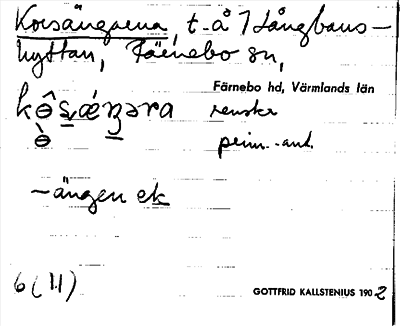 Korsängarna, t. å 7 Långbans-
hyttan, Färnebo sn,
Färnebo hd, Värmlands län
-ängen ek
6 (11)
GOTTFRID KALLSTENIUS 1902